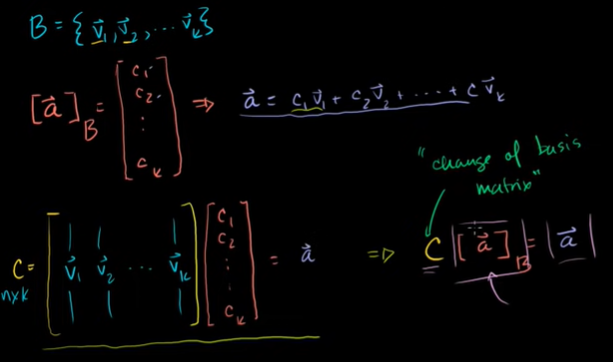 B = {v⃗₁, v⃗₂, ... v⃗ₖ}
[a⃗]_B = [c₁ c₂ ⋮ cₖ] ⇒ a⃗ = c₁v⃗₁ + c₂v⃗₂ + ··· + cv⃗ₖ
"change of basis
matrix"
C = [v⃗₁ v⃗₂ ··· v⃗ₖ] [c₁ c₂ ⋮ cₖ] = a⃗ ⇒ C [a⃗]_B = a⃗
n×k